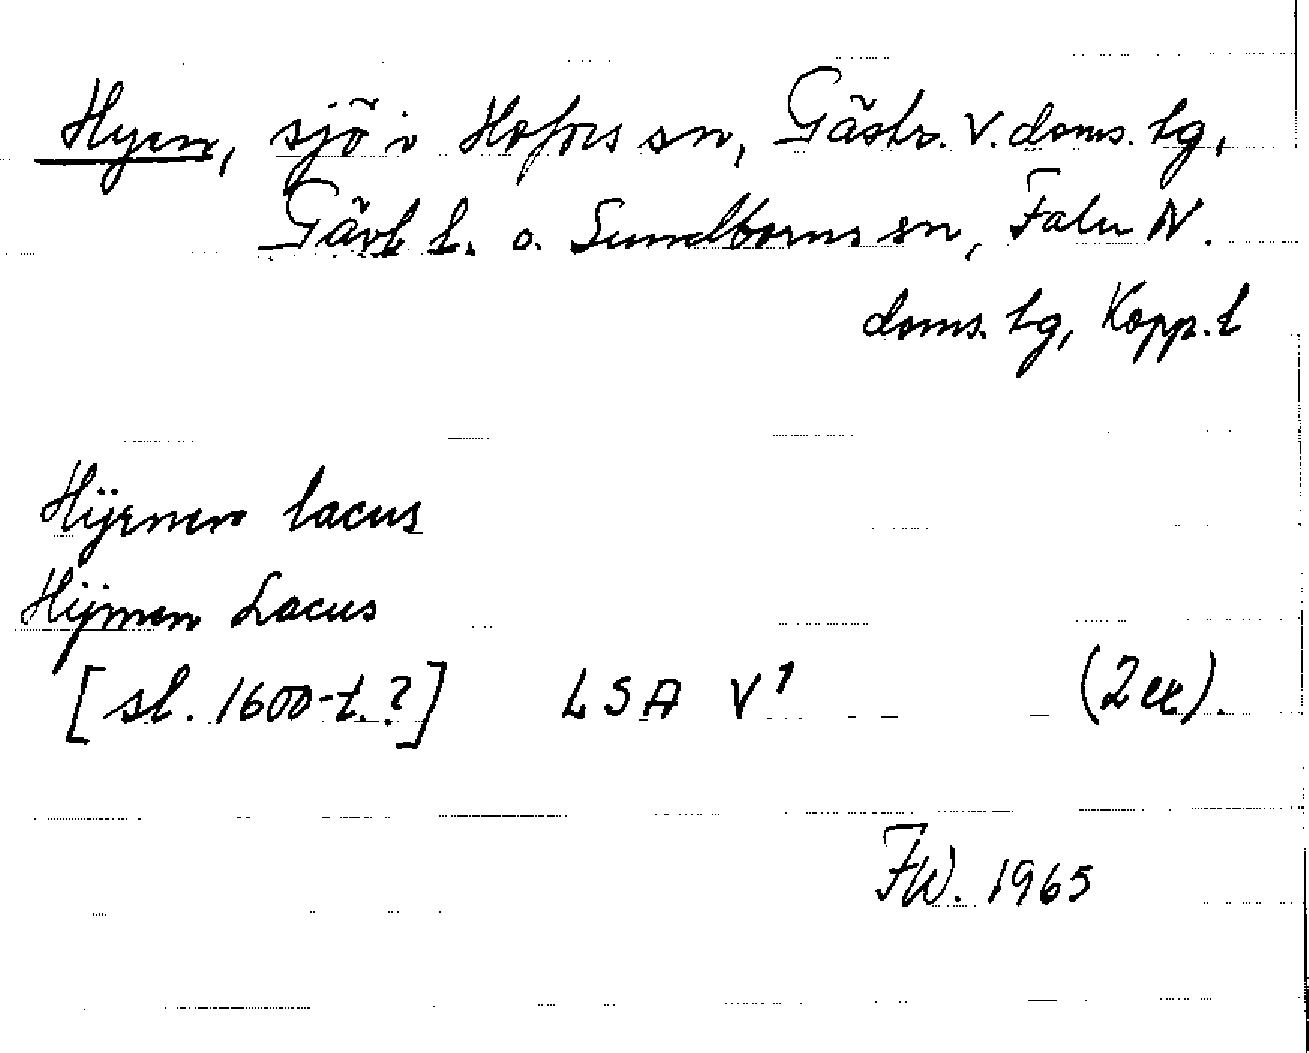 Hyen, sjö i Hofors sn, Gästr. V. doms. lg,
Gävl l. o. Sundborns sn, Falu N.
doms. lg, Kopp. l
Hÿenen lacus
Hÿmen Lacus
[sl. 1600-t.?] LSA V¹ (2 ex).
FW. 1965